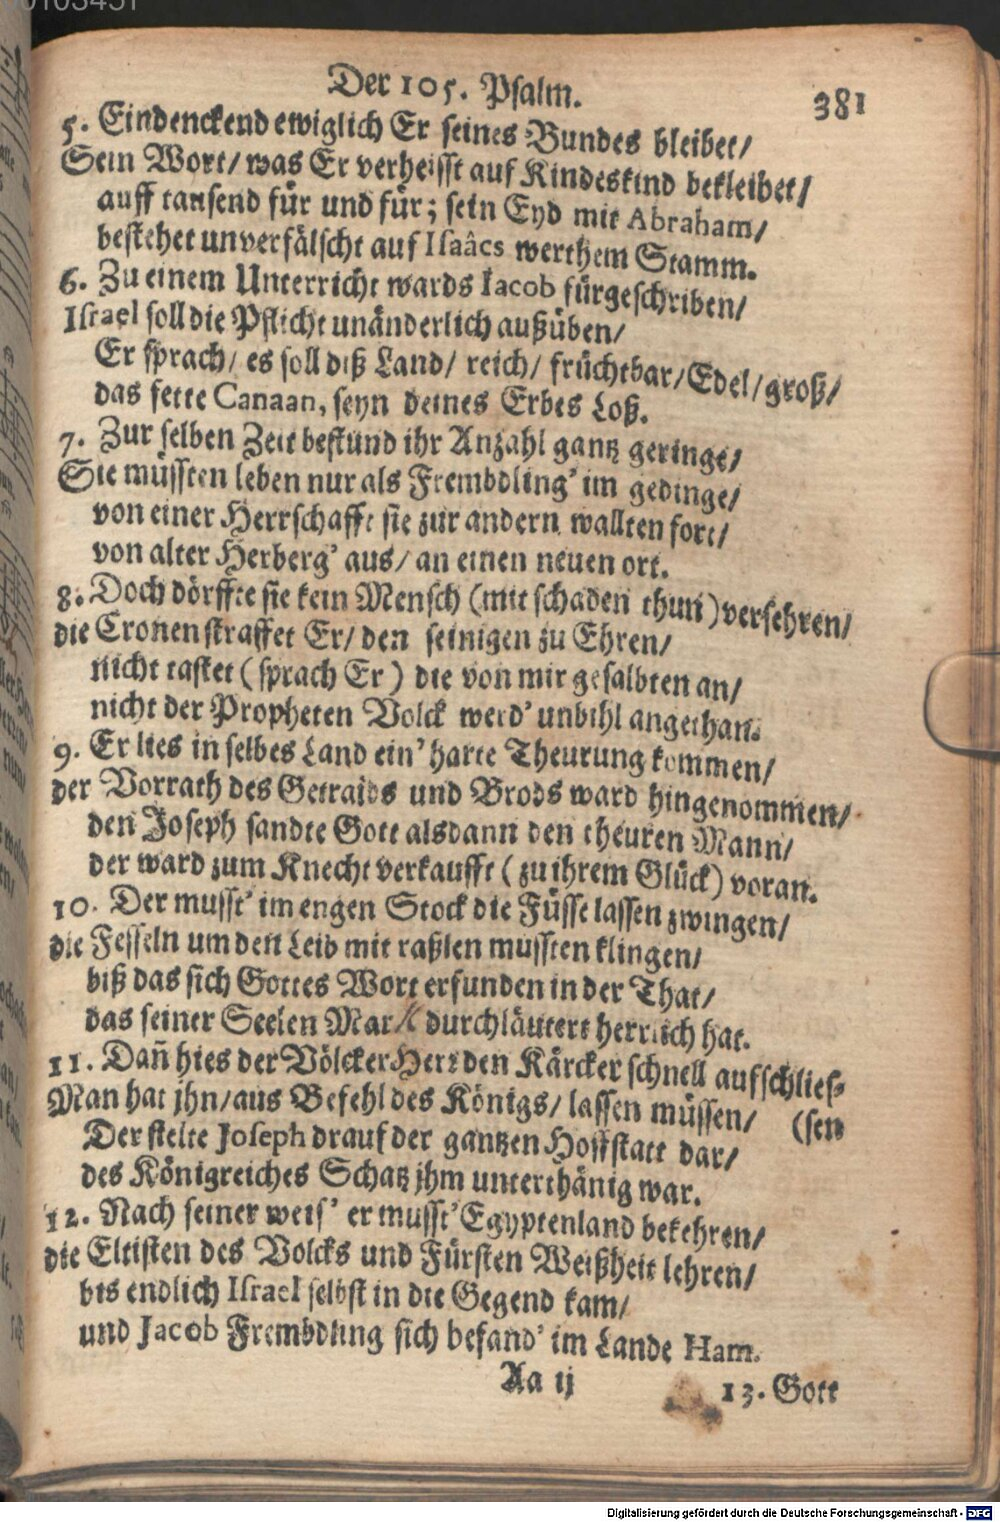 Der 105. Psalm. 381
5. Eindenckend ewiglich Er seines Bundes bleibet/
Sein Wort/ was Er verheisst auf Kindeskind bekleibet/
auff tausend für und für; sein Eyd mit Abraham/
bestehet unverfälscht auf Isaâcs werthem Stamm.
6. Zu einem Unterricht wards Iacob fürgeschriben/
Israel soll die Pflicht unänderlich außüben/
Er sprach/ es soll diß Land/ reich/ früchtbar/ Edel/ groß/
das fette Canaan, seyn deines Erbes Loß.
7. Zur selben Zeit bestund ihr Anzahl gantz geringe/
Sie müssten leben nur als Frembdling' im gedinge/
von einer Herrschafft sie zur andern wallten fort/
von alter Herberg' aus/ an einen neuen ort.
8. Doch dörffte sie kein Mensch (mit schaden thun) versehren/
die Cronen straffet Er/ den seinigen zu Ehren/
nicht tastet (sprach Er) die von mir gesalbten an/
nicht der Propheten Volck werd' unbihl angethan.
9. Er lies in selbes Land ein' harte Theurung kommen/
der Vorrath des Getraids und Brods ward hingenommen/
den Joseph sandte Gott alsdann den theuren Mann/
der ward zum Knecht verkaufft (zu ihrem Glück) voran.
10. Der musst' im engen Stock die Füsse lassen zwingen/
die Fesseln um den Leib mit raßlen mussten klingen/
biß das sich Gottes Wort erfunden in der That/
das seiner Seelen Mark durchläutert herrlich hat.
11. Dañ hies der Völcker Herr den Kärcker schnell aufschlies-
Man hat jhn/ aus Befehl des Königs/ lassen müssen/ (sen
Der stelte Joseph drauf der gantzen Hoffstatt dar/
des Königreiches Schatz jhm unterthänig war.
12. Nach seiner weis' er musst' Egyptenland bekehren/
die Eltisten des Volcks und Fürsten Weißheit lehren/
bis endlich Israel selbst in die Gegend kam/
und Jacob Frembdling sich befand' im Lande Ham.
Aa ij 13. Gott
Digitalisierung gefördert durch die Deutsche Forschungsgemeinschaft - DFG